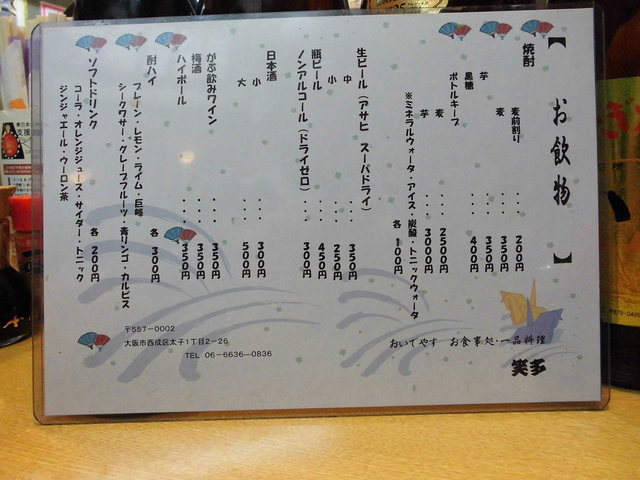 【お飲物】
焼酎
麦前割り ・・・ 200円
麦 ・・・ 350円
芋 ・・・ 350円
黒糖 ・・・ 400円
ボトルキープ
麦 ・・・ 2500円
芋 ・・・ 3000円
※ミネラルウォータ・アイス・炭酸・トニックウォータ 各100円
生ビール(アサヒ スーパドライ)
中 ・・・ 350円
小 ・・・ 250円
瓶ビール ・・・ 450円
ノンアルコール(ドライゼロ) ・・・ 300円
日本酒
小 ・・・ 300円
大 ・・・ 500円
がぶ飲みワイン ・・・ 350円
梅酒 ・・・ 350円
ハイボール ・・・ 350円
酎ハイ 各300円
プレーン・レモン・ライム・巨峰
シークワサー・グレープフルーツ・青リンゴ・カルピス
ソフトドリンク 各200円
コーラ・オレンジジュース・サイダー・トニック
ジンジャエール・ウーロン茶
〒557-0002
大阪市西成区太子1丁目2-26
TEL 06-6636-0836
おいでやす お食事処・一品料理
笑多